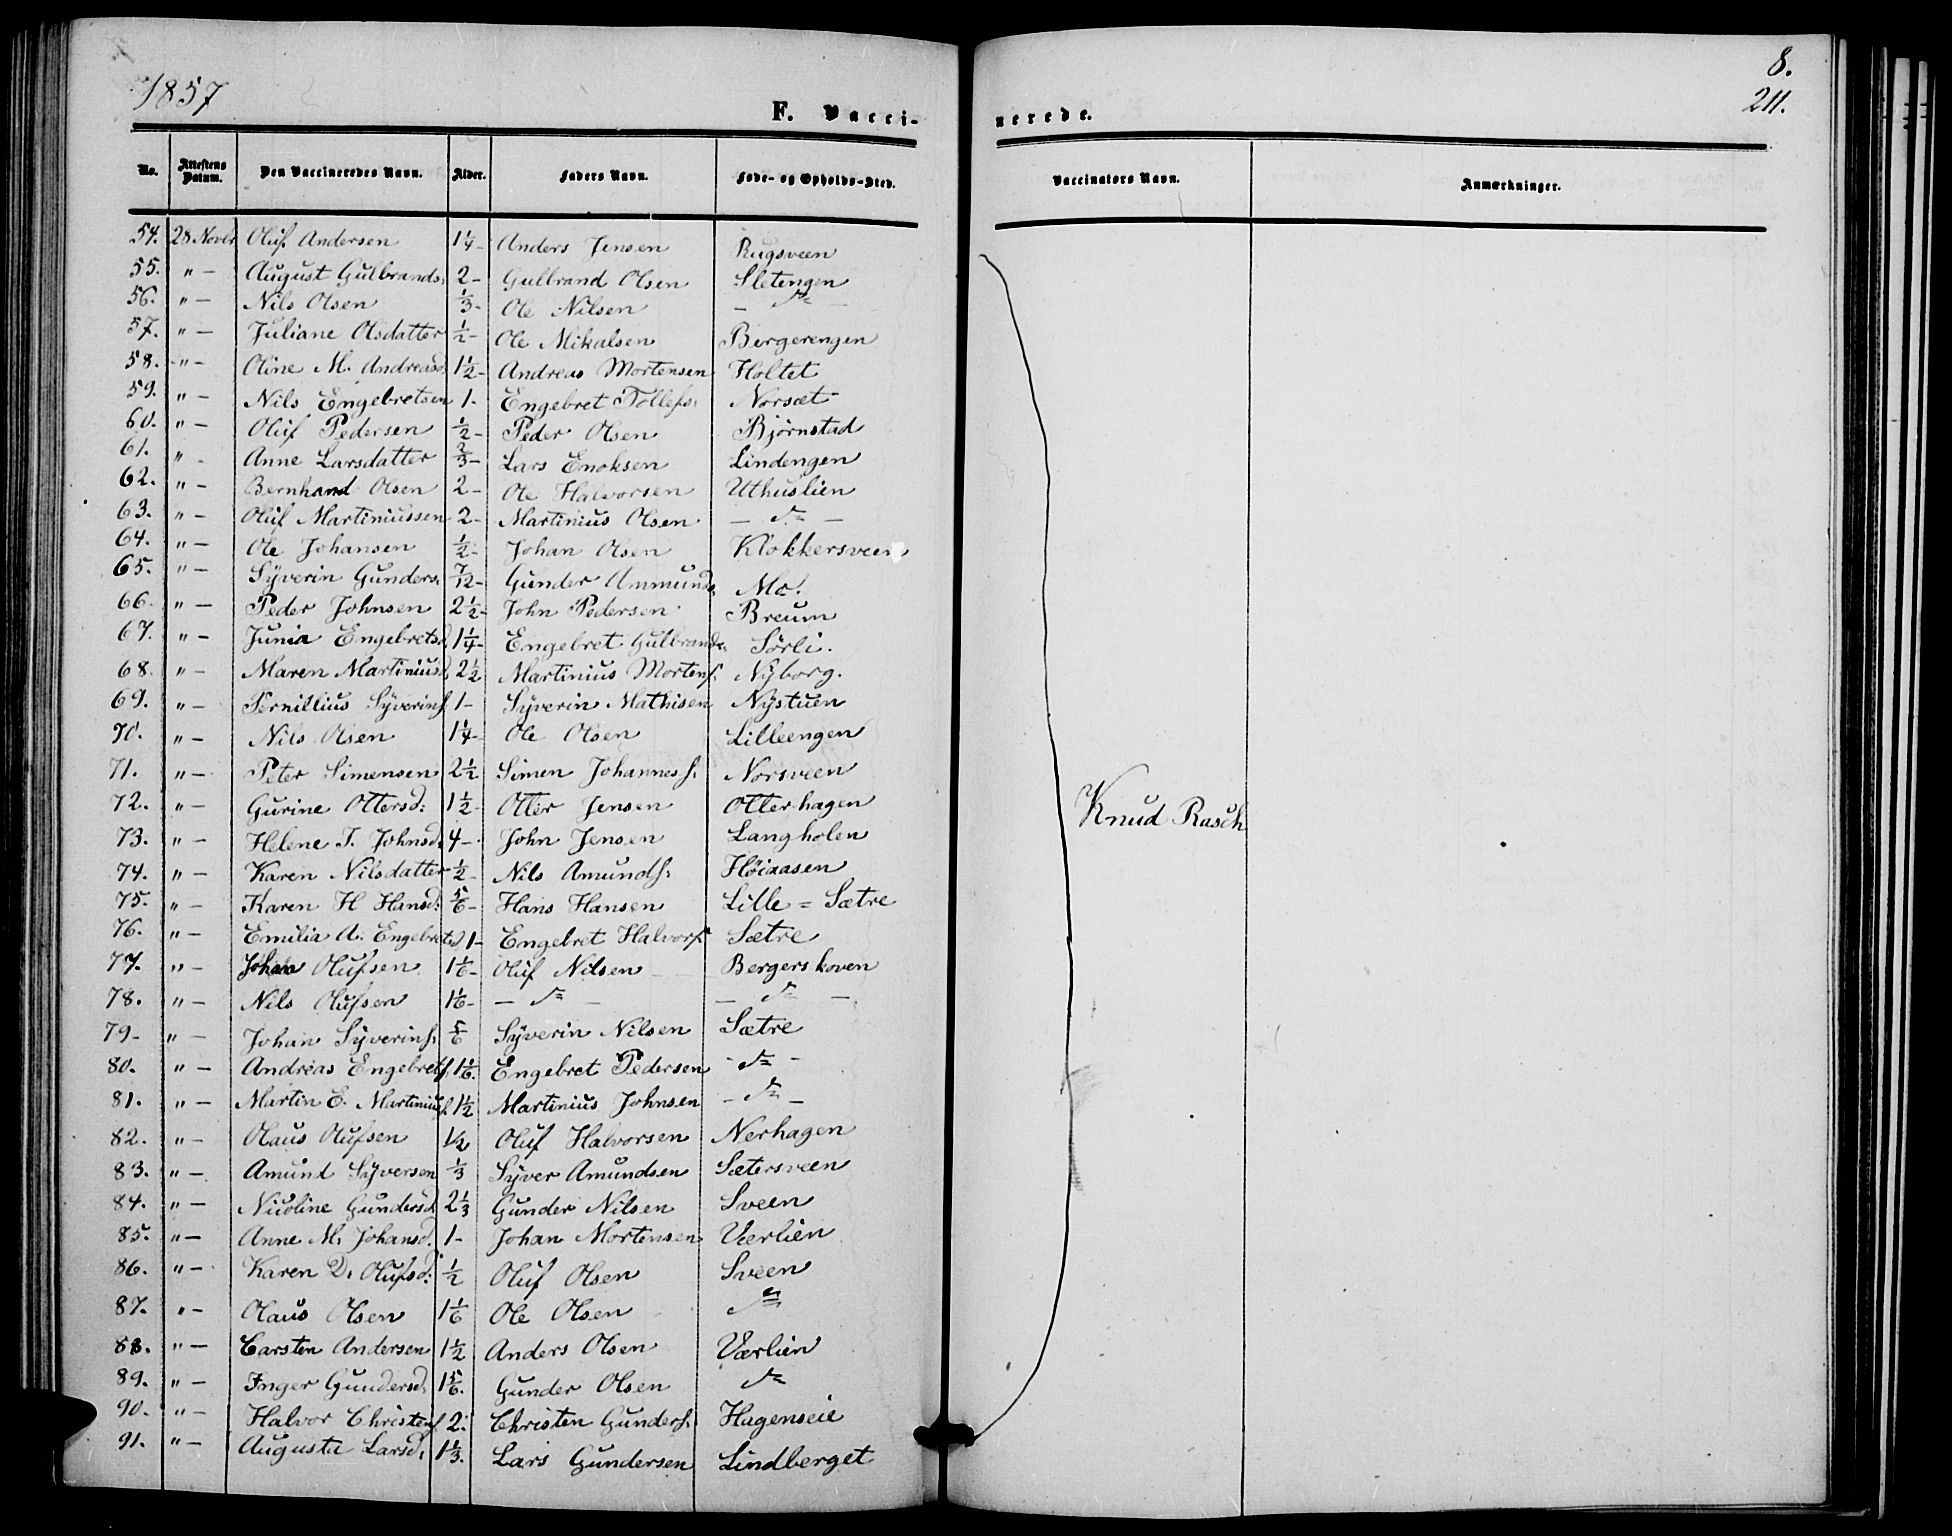 1857
F. Vacci-
nerede.
8.
211.
No. Attestens Datum. Den Vaccineredes Navn. Alder. Faders Navn. Føde- og Opholds-Sted. Vaccinators Navn. Anmærkninger.
54. 28 Novbr Oluf Andersen 1 1/4 - Anders Jensen Rugsveen
55. " - August Gulbrands: 2 - Gulbrand Olsen Sletengen
56. " - Nils Olsen 1/3 - Ole Nilsen - do -
57. " - Juliane Olsdatter 1/2 - Ole Mikalsen Bergerengen
58. " - Oline M. Andreasd. 1 1/2 - Andreas Mortensen Holtet
59. " - Nils Engebretsen 1 - Engebret Tollefs: Norsæt
60. " - Oluf Pedersen 1/2 - Peder Olsen Bjørnstad
61. " - Anne Larsdatter 2/3 - Lars Enoksen Lindengen
62. " - Bernhard Olsen 2 - Ole Halvorsen Uthuslien
63. " - Oluf Martiniussen 2 - Martinius Olsen - do -
64. " - Ole Johansen 1/2 - Johan Olsen Klokkersveen
65. " - Syverin Gunders. 7/12 - Gunder Ammunds. Mo.
66. " - Peder Johnsen 2 1/2 - John Pedersen Breum
67. " - Junia Engebretsd. 1 1/4 - Engebret Gulbrands. Sörli.
68. " - Maren Martiniusd. 2 1/2 Martinius Mortens: Nyborg.
69. " - Pernillius Syverins. 1 - Syverin Mathisen Nystuen
70. " - Nils Olsen 1 1/4 - Ole Olsen Lilleengen
71. " - Peter Simensen 2 1/2 Simen Johannes: Norsveen
72. " - Gurine Ottersd: 1 1/2 - Otter Jensen Otterhagen
73. " - Helene T. Johnsd. 4 - John Jensen Langholen
74. " - Karen Nilsdatter 1/2 - Nils Amunds: Höiaasen
75. " - Karen H Hansd: 5/6 - Hans Hansen Lille = Sætre
76. " - Emilia A. Engebretsd. 1 - Engebret Halvors: Sætre
77. " - Johan Olufsen 1 1/6 - Oluf Nilsen Bergerskoven
78. " - Nils Olufsen 1 1/6 - - do - - do -
79 - " - Johan Syverins: 5/6 Syverin Nilsen Sætre
80. " - Andreas Engebrets. 1 1/6. Engebret Pedersen - do -
81. " - Martin E. Martinius. 1 1/2 Martinius Johnsen - do -
82. " - Olaus Olufsen 1/2 Oluf Halvorsen Nerhagen
83. " - Amund Syversen 1/3 Syver Amundsen Sætersveen
84. " - Nicoline Gundersd 2 1/3 Gunder Nilsen Sveen
85. " - Anne M. Johansd. 1 - Johan Mortensen Værlien
86. " - Karen D. Olufsd: 1/2 Oluf Olsen Sveen
87. " - Olaus Olsen 1 1/6 Ole Olsen do
88. " - Carsten Andersen 1 1/2 Anders Olsen Værlien
89. " - Inger Gundersd. 1 5/6. Gunder Olsen do
90. " - Halvor Christens. 2. Christen Gunders: Hagenseie
91. " - Auguste Larsd. 1 1/3. Lars Gundersen Lindberget
Knud Rasch